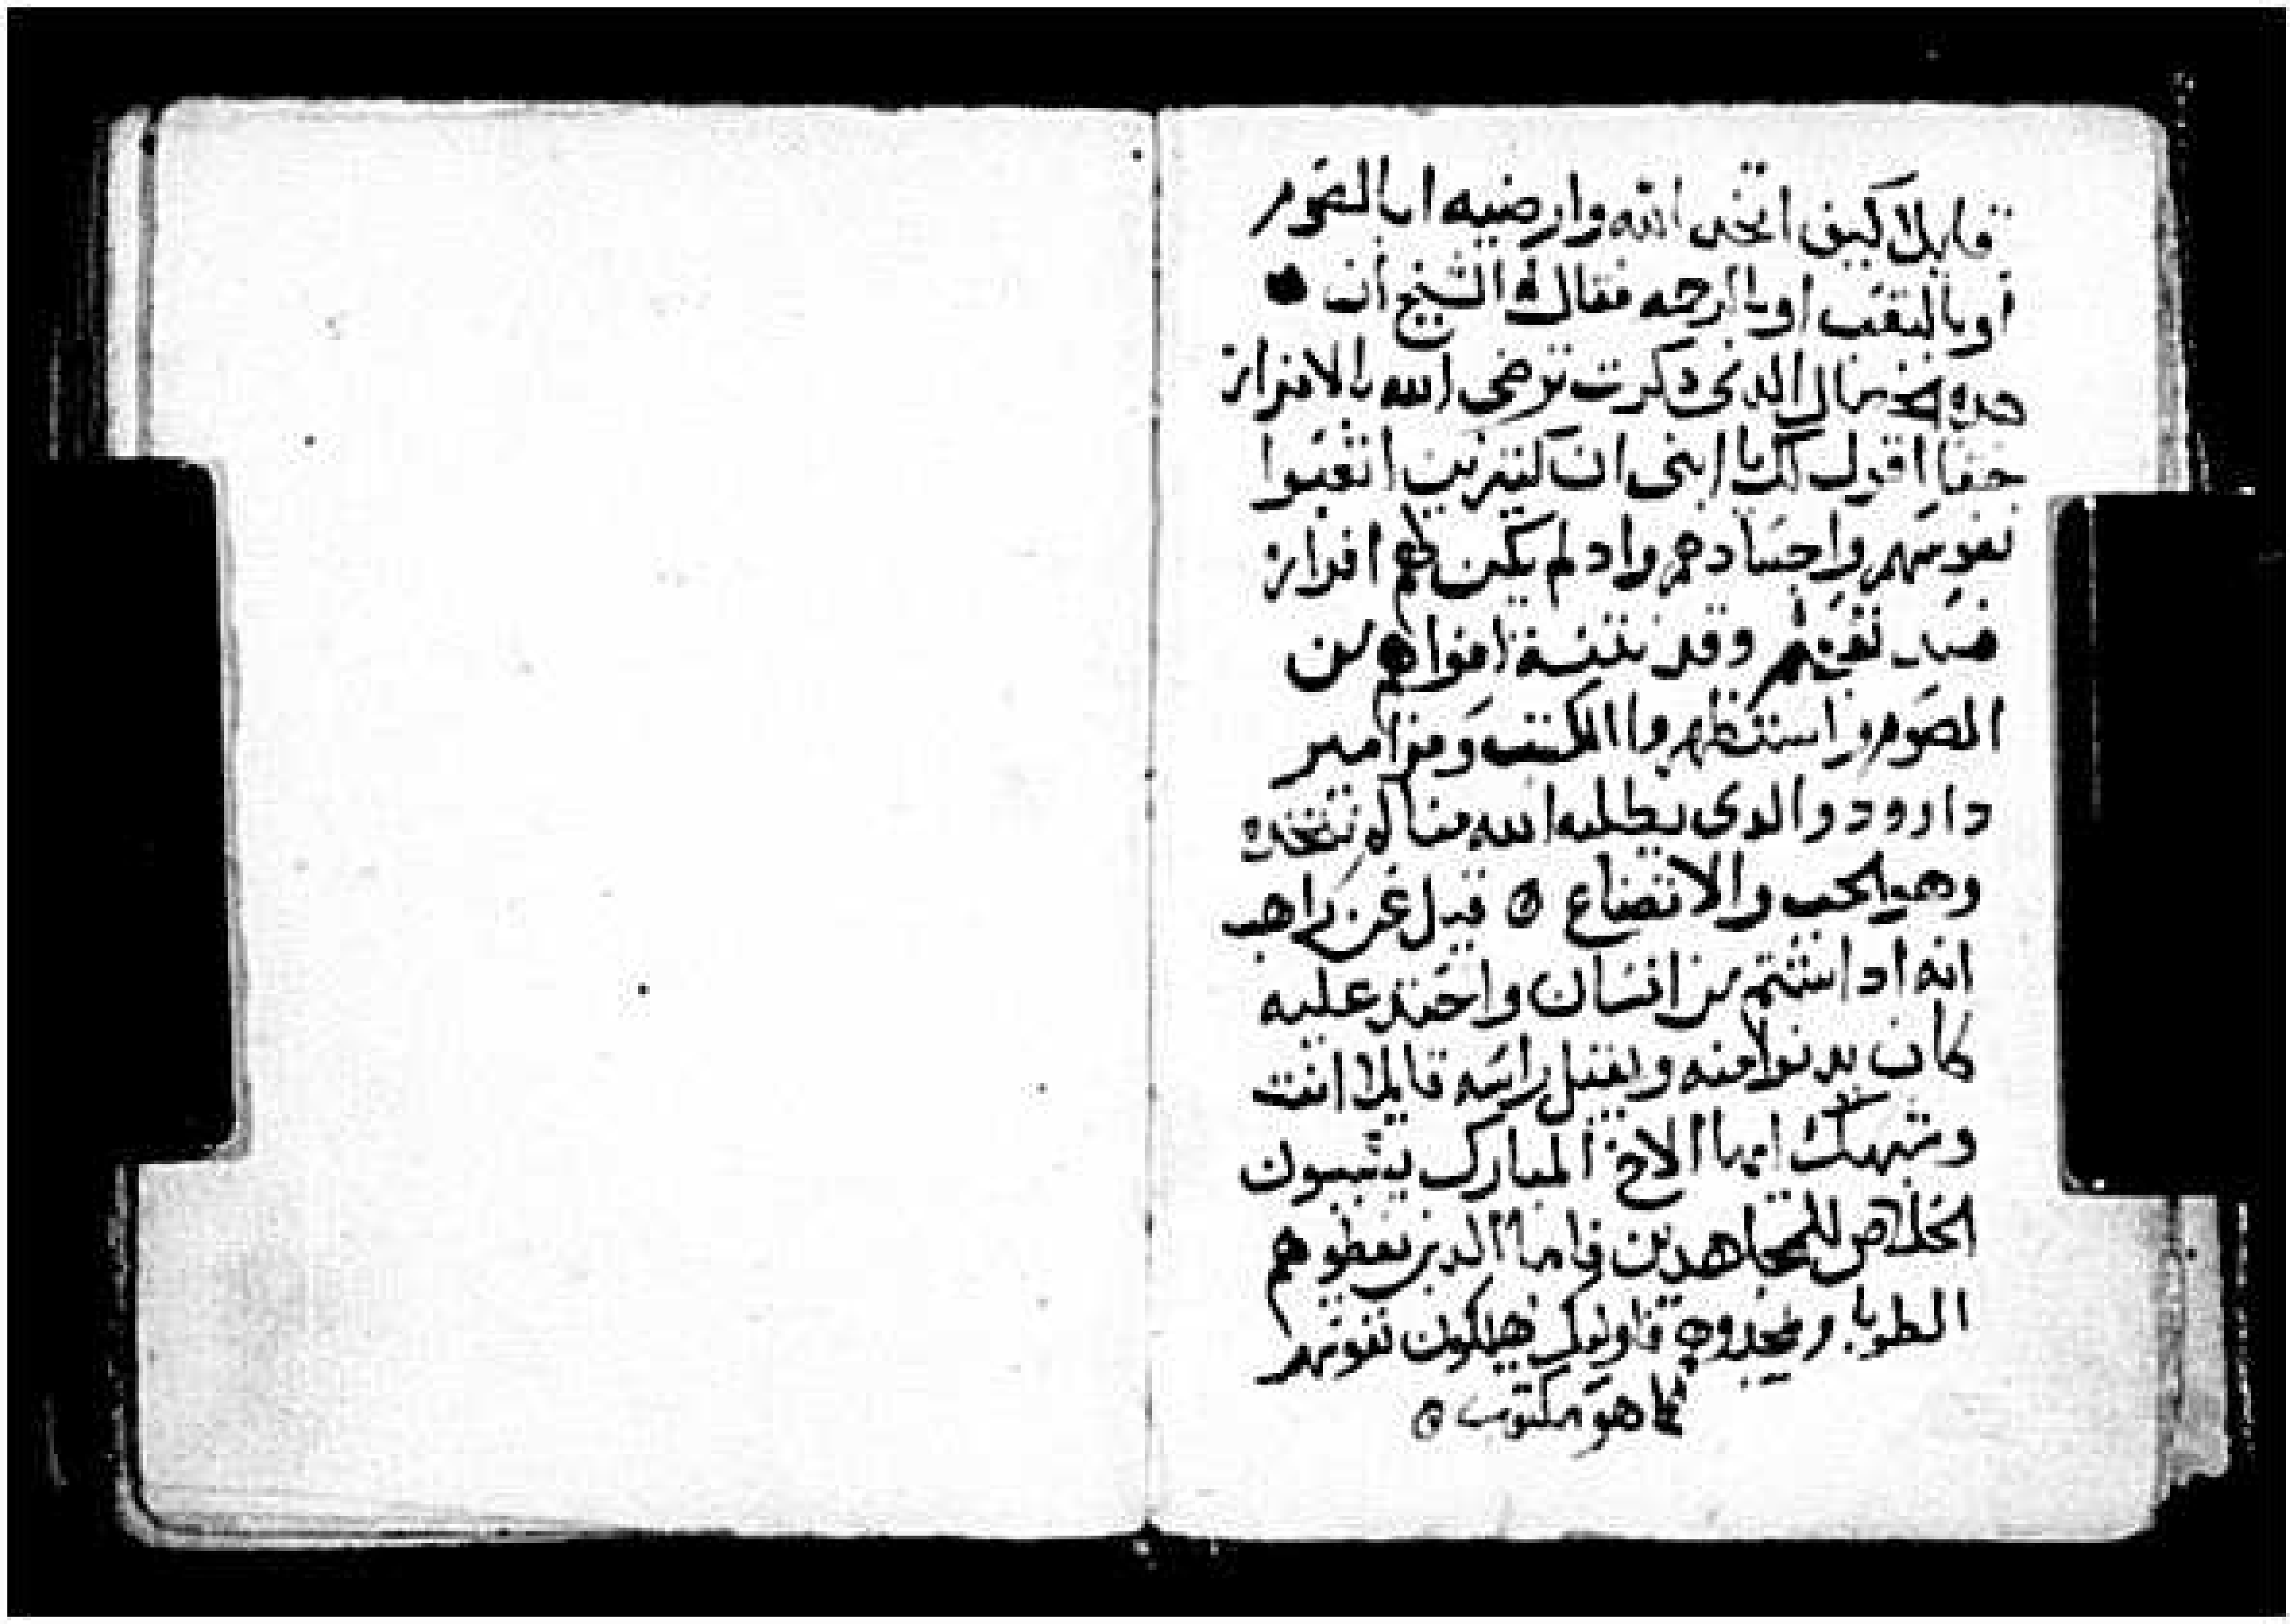 قايلا كيف اتخد الله وارضيه ابالصوم
او بالتعب او بالرحمه فقال له الشيخ ان
هده الخصال الدى دكرت ترضى الله بالافراز
حقا اقول لك يا ابنى ان كتيرين اتعبوا
نفوسهم واجسادهم واد لم يكن لهم افراز
تعبهم وقد نتنة افواههم من
الصوم واستظهروا الكتب ومزامير
داوود والدى يطلبه الله منا لم
وهو الحب والاتضاع ۞ قيل عن راهب
انه ادا اشتم من انسان واحتد عليه
كان يدنوا منه ويقبل راسه قايلا انت
وشبهك ايها الاخ المبارك يسببون
الخلاص للمجاهدين فاما الدين يعطوهم
الطوبا ويمجدوهم فاوليك يهلكون نفوسهم
كما هو مكتوب ۞